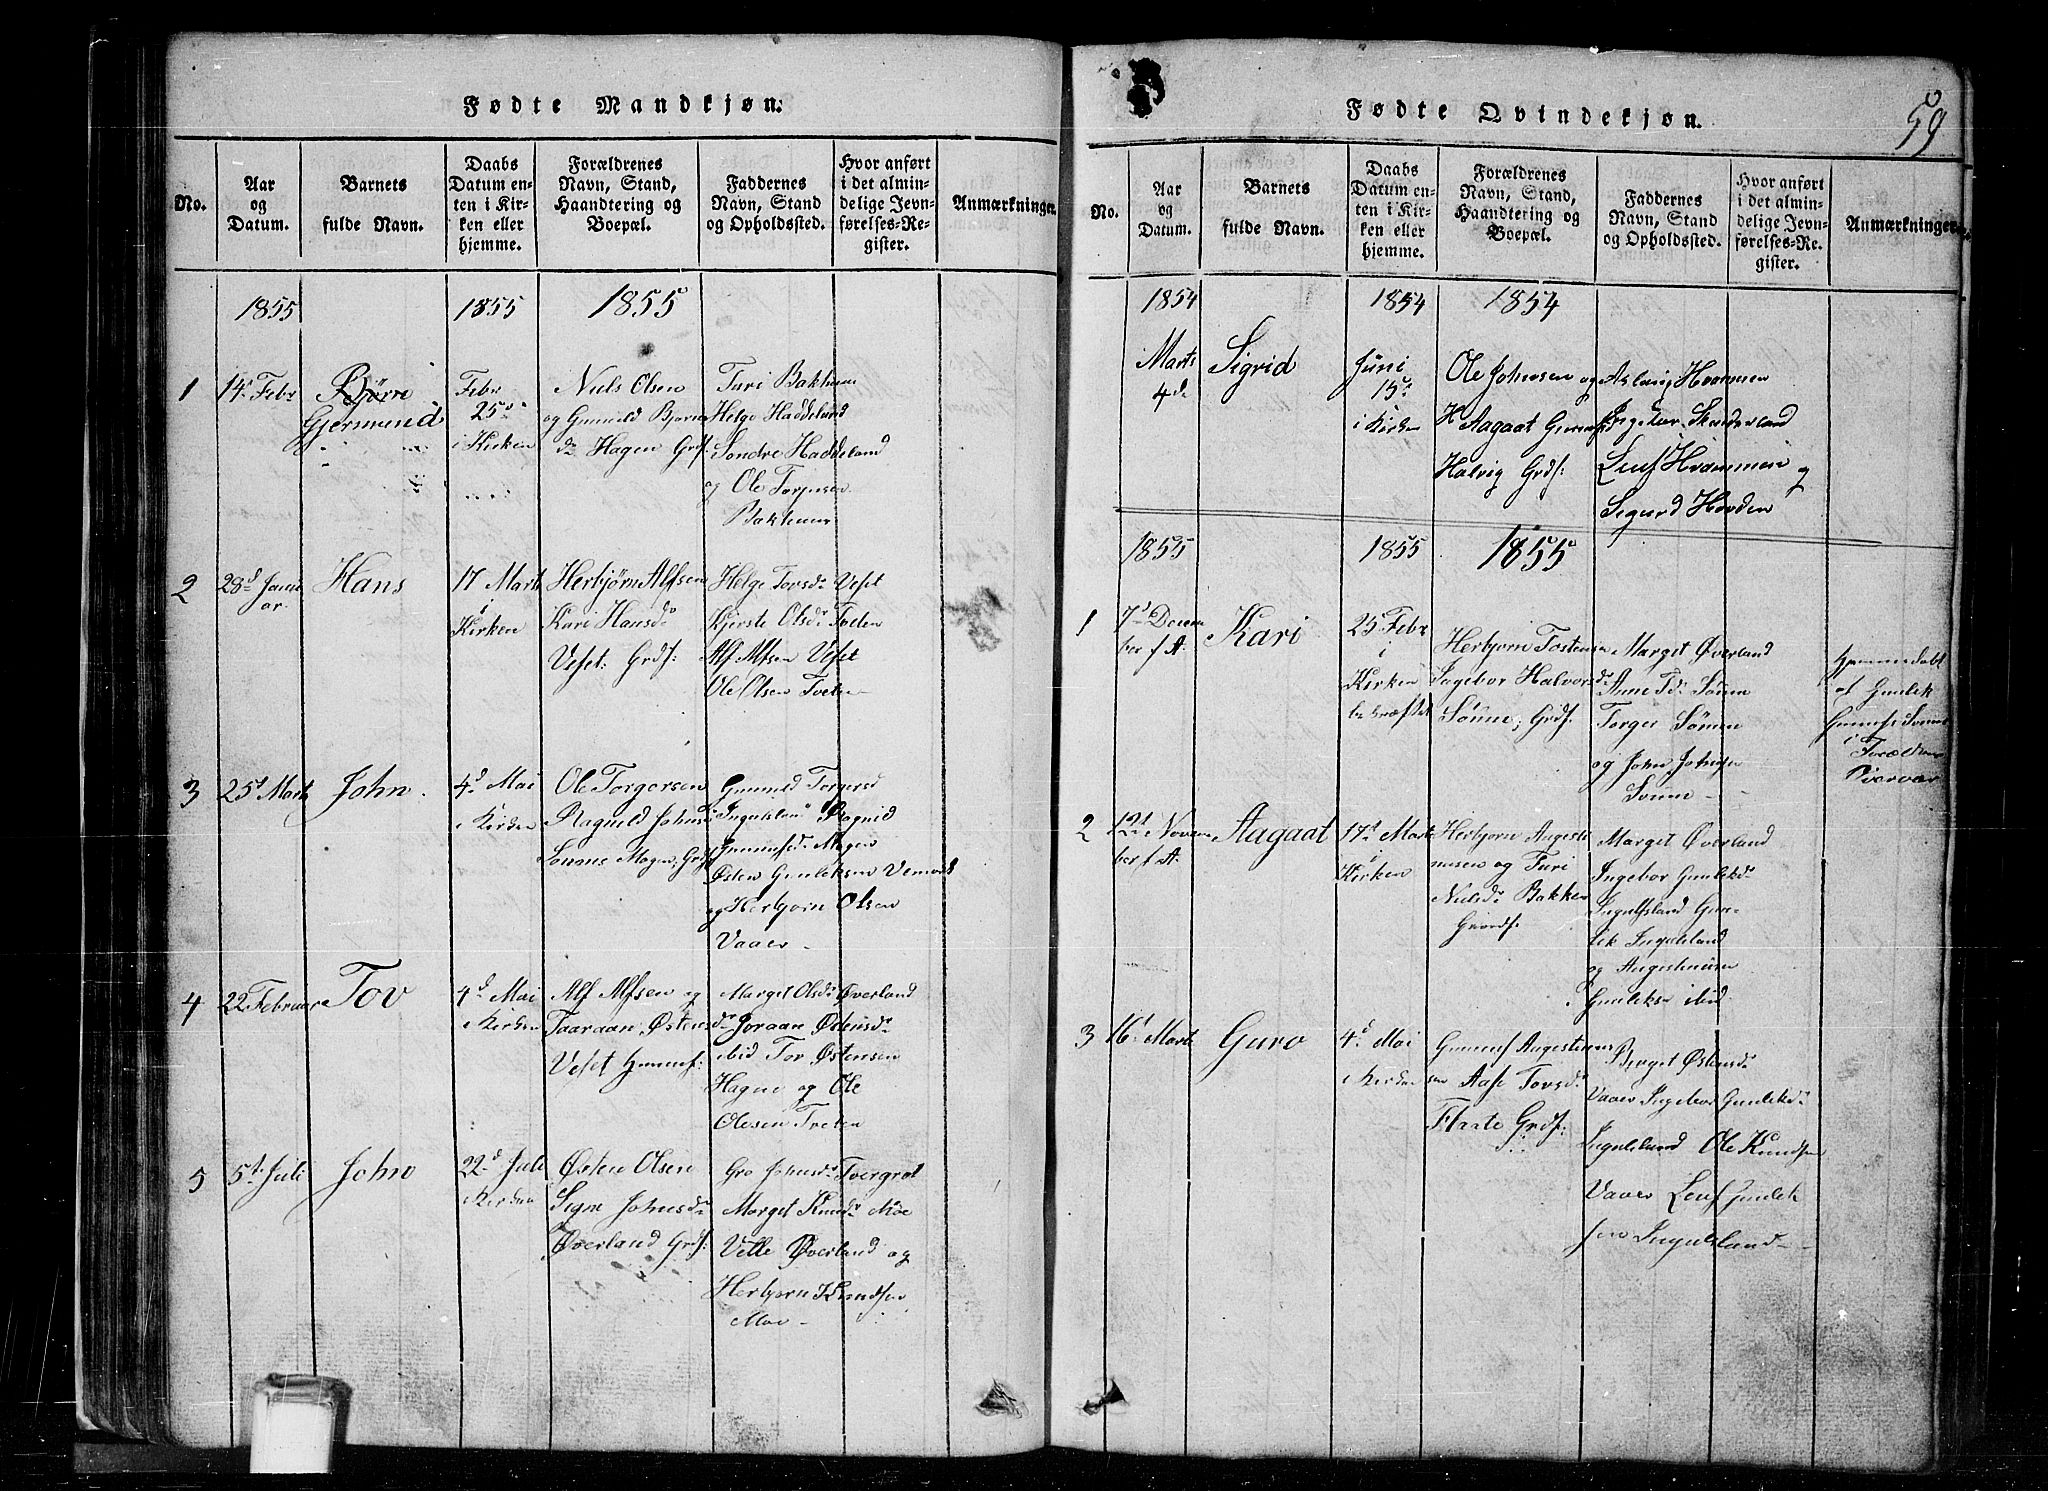 Fødte Mandkjøn.
No.
Aar
og
Datum.
Barnets
fulde Navn.
Daabs
Datum en-
ten i Kir-
ken eller
hjemme.
Forældrenes
Navn, Stand,
Haandtering og
Boepæl.
Faddernes
Navn, Stand
og Opholdssted.
Hvor anført
i det almin-
delige Jevn-
førelses-Re-
gister.
Anmærkninger.
1855 1855 1855
1 14 Febr
Bjørre
Gjermund
Febr
25
i Kirken
Niels Olsen
og Gunnild Bjørns
dr Hagen Grdf:
Turi Bakhuus
Helge Haddeland
Sondre Haddeland
og Ole Torjusen
Bakhuus
2 28d Janu
ar.
Hans
17 Marts
i
Kirken
Herbjørn Alfsen
Kari Hansdr
Veset: Grdf:
Helge Torsdr Veset
Kjerste Olsdr Tveten
Alf Alfsen Veset
Ole Olsen Tveten
3 25d Marts
John.
4d Mai
i Kirken
Ole Torgersen
Ragnild Johns
Mogen, Grdf
Gunnild Torgersd
Ingulsland Ragnid
Gunnufsdr Mogen
Østen Gunleksen
og Herbjørn Olsen
Vaaer
4 22 Februar
Tov
4d Mai
i Kirken
Alf Alfsen og
Taaraan Østensdr
Veset Huusmf:
Marget Olsdr Øverland
Joraan Østensdr
ibid Tov Østensen
Hagne og Ole
Olesen Treten
5 5t Juli
John
22d Juli
i Kirken
Østen Olsen
Signe Johnsdr
Øverland Grdf:
Gro Johnsdr Tvergrot
Marget Knudsdr Moe
Vetle Øverland og
Herbjørn Knudsen
Moe
Fødte Qvindekjøn.
59
No.
Aar
og
Datum.
Barnets
fulde Navn.
Daabs
Datum en-
ten i Kir-
ken eller
hjemme.
Forældrenes
Navn, Stand,
Haandtering og
Boepæl.
Faddernes
Navn, Stand
og Opholdssted.
Hvor anført
i det almin-
delige Jevn-
førelses-Re-
gister.
Anmærkninger.
1854 1854 1854
Marts
4d
Sigrid
Juni
15
i Kirken
Ole Johnsen og
Aagaat
Halvig Grdf:
Aslaug Hvammen
Skinderland
Leuf Hvammen og
Sigurd Hovden
1855 1855 1855
1 7d Decem
ber f. A.
Kari
25 Febr
i
Kirken
bekræftet
Herbjorn Tostensen
Ingebor Halvorsdr
Sønne, Grdf.
Marget Øverland
Anne Td. Sønne
Torger Sønne
og John Johnsen
Svnne
Hjemmedøbt
af Gunlek
Gunnufs
i Forældrenes
Nærvær
2 12t Novem
ber f. A.
Aagaat
17d Marts
i
Kirken
Herbjorn Augesti
nusen og Turi
Nielsdr Bakken
Grdf.
Marget Øverland
Ingebor Gunleksdr
Ingulfsland Gun-
lek Ingulsland
og Augestinusen
Gunleksen ibid
3 16d Marts
Guro
4d Mai
i Kirken
Gunnuf Augestinus
sen Aase Torsdr
Flaate Grdf:
Berget Østensdr
Vaaer Ingebor Gunleksdr
Ingulsland Ole Knudsen
Vaaer Leuf Gunlek
sen Ingulsland